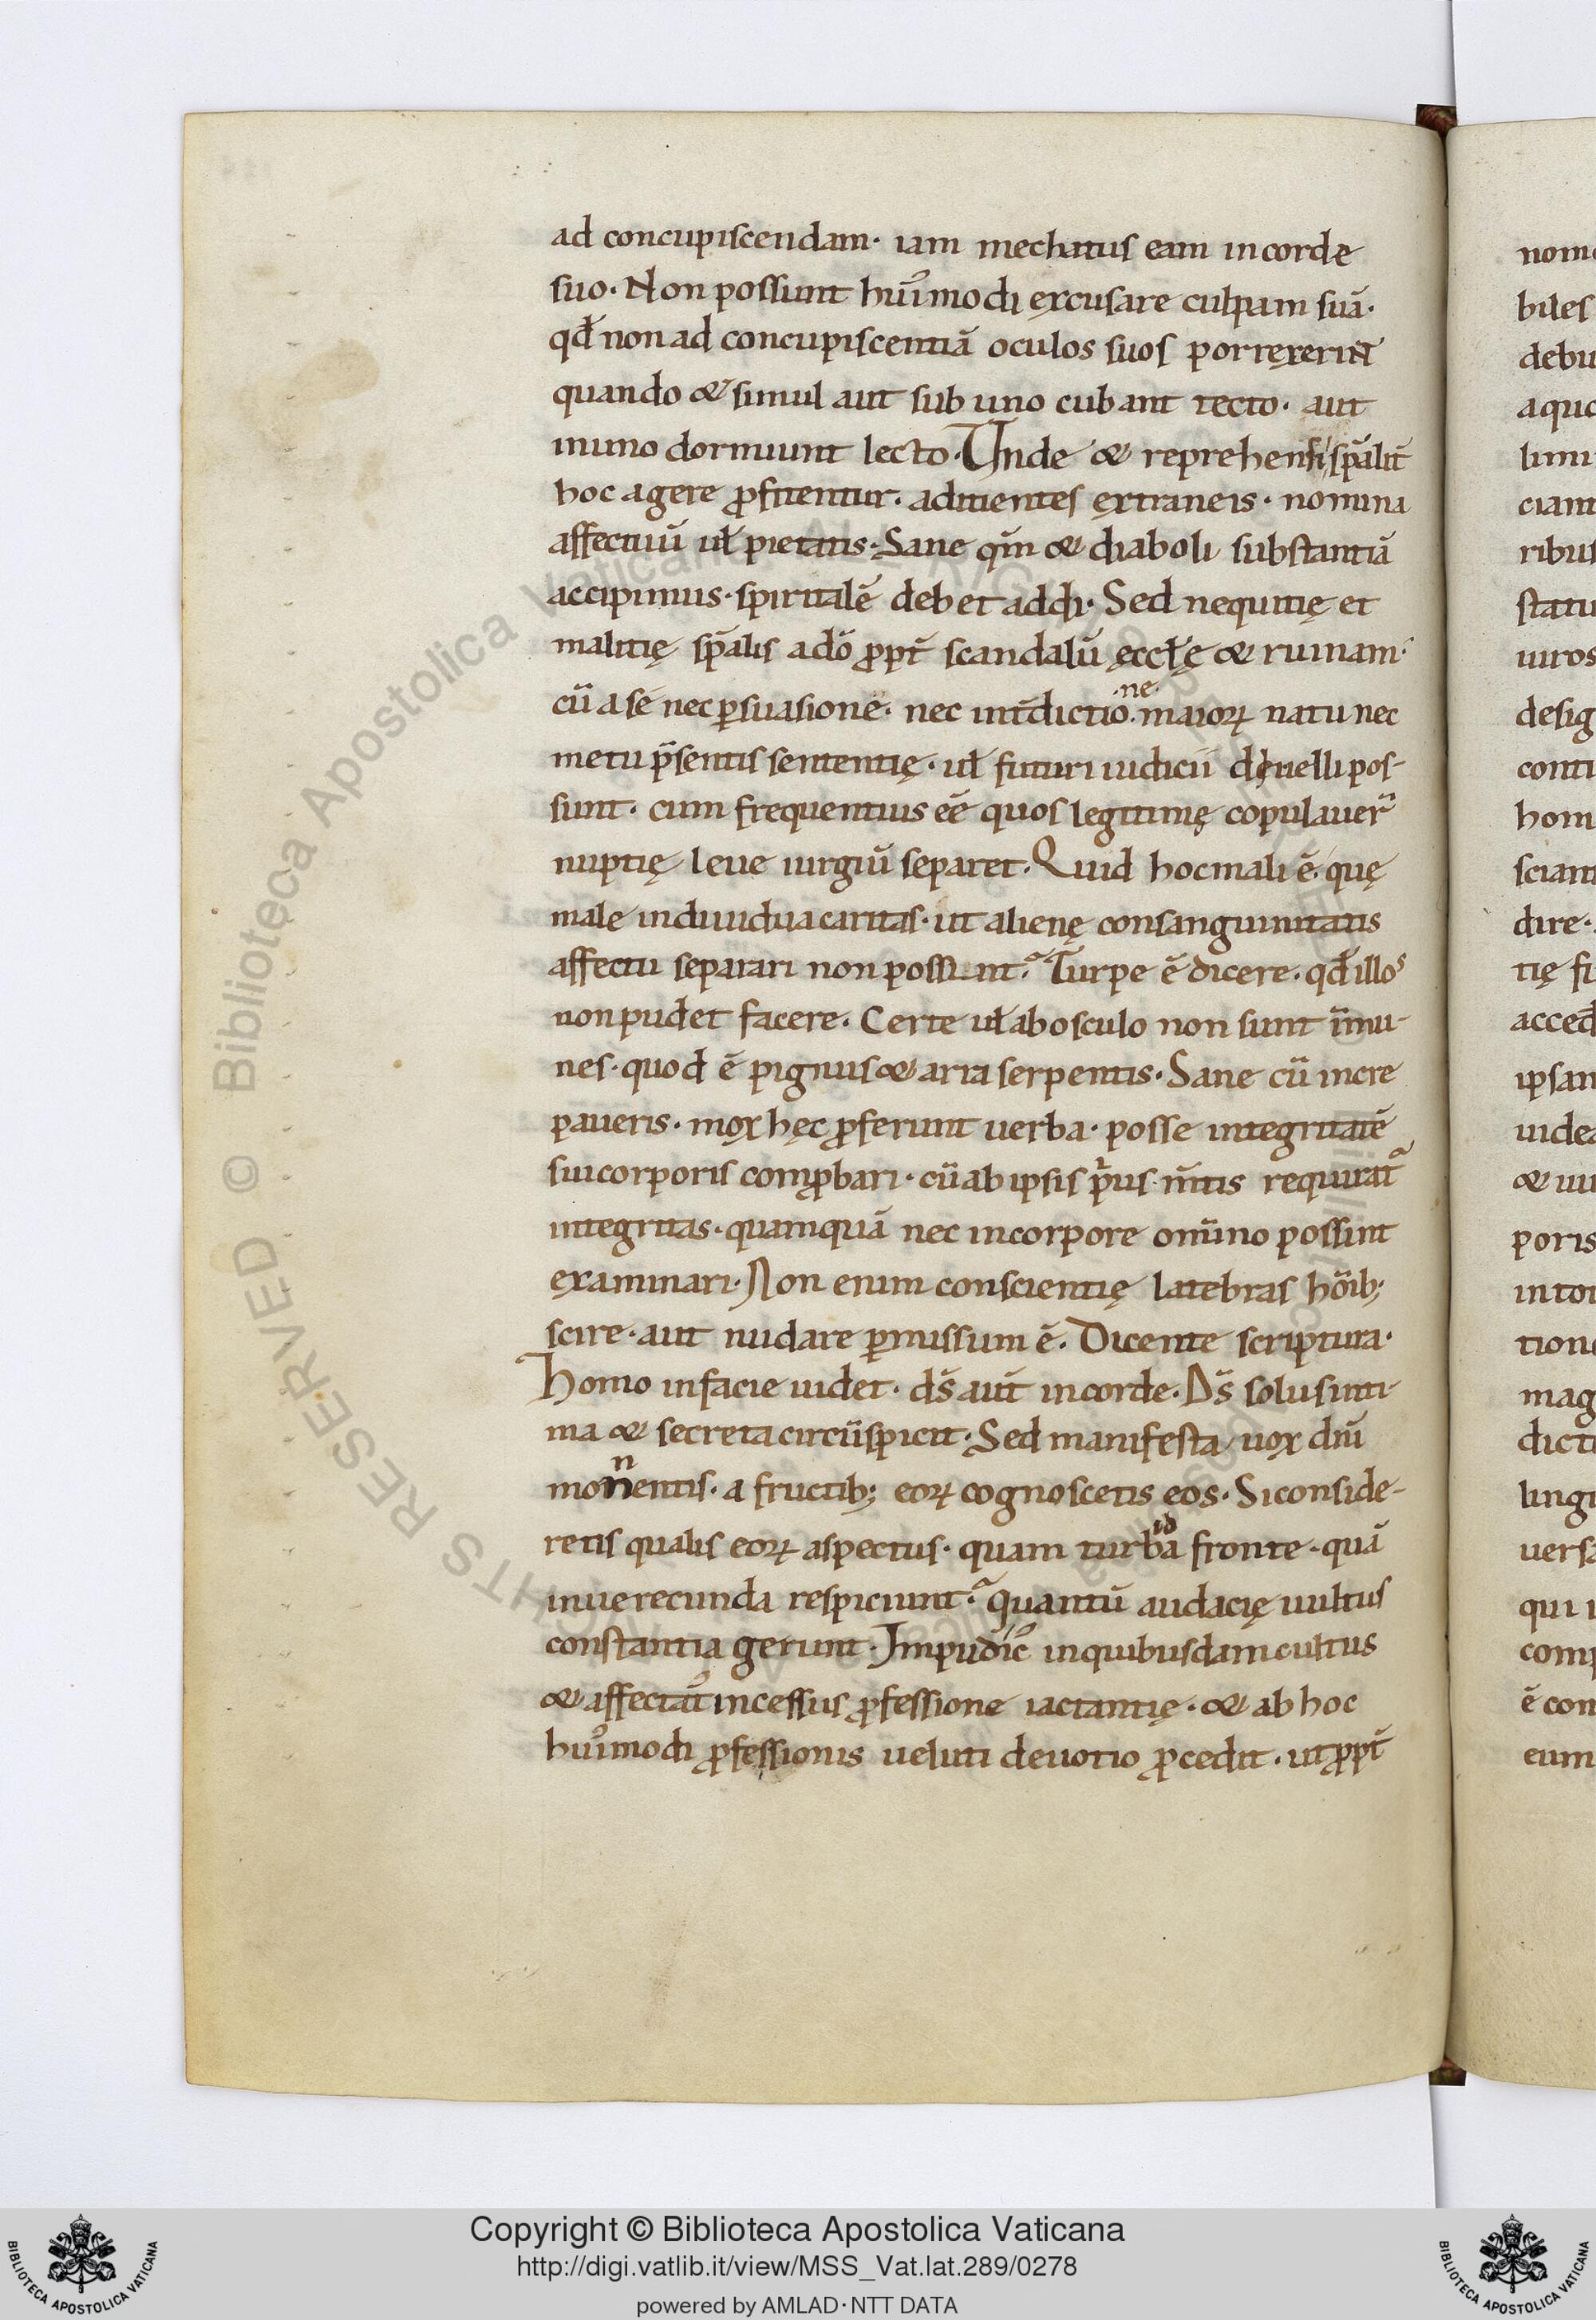 ad concupiscendam· iam mechatus eam in corde
suo· Non possunt huı᷒modi excusare culpam suā·
qđ non ad concupiscentiā oculos suos porrexerint
quando & simul aut sub uno cubant tecto· aut
in uno dormiunt lecto· Unde & reprehensi sp̄alit̄
hoc agere ꝓfitentur· adicientes extraneis· nomina
affectuū uł pietatis· Sane qm̄ & diaboli substantiā
accipimus· spiritalē debet addi· Sed nequitię et
malitię sp̄alis adō ꝓpt̄ scandalū ęccłę & ruinam·
cū a se nec ꝑsuasione· nec int̄dictio·ne· maioꝝ natu nec
metu p̄sentis sententię· uł futuri iudicii diuelli pos-
sunt· cum frequentius eē quos legitimę copulauer̄
nuptię leue iurgiū separet· Quid hoc mali ē· quę
male indiuidua caritas· ut alienę consanguinitatis
affectu separari non possunt· Turpe ē dicere· qđ illos
non pudet facere· Certe uł ab osculo non sunt īmu-
nes· quod ē pignus & arra serpentis· Sane cū incre
paueris· mox hęc ꝓferunt uerba· posse integritatē
sui corporis comꝓbari· cū ab ipsis pⁱus m̄tis requirat᷑
integritas· quamquā nec in corpore om̄ino possint
examinari· Non enim conscientię latebras hōib;
scire· aut nudare ꝑmissum ē· Dicente scriptura·
Homo in facie uidet· dš aut̄ in corde· Dš solus inti-
ma & secreta circūspicit· Sed manifesta uox dn̄i
monnentis· a fructib; eoꝝ cognoscetis eos· Si conside-
retis qualis eoꝝ aspectus· quam turbida fronte· quā
inuerecunda respiciunt· quantū audacię uultus
constantia gerunt· Impudic᷒ in quibusdam cultus
& affectat᷒ incessus ꝓfessione iactantię· & ab hoc
huı᷒modi ꝓfessionis ueluti deuotio ꝓcedit· ut ꝓpt̄
biles
debu
a quo
limi
ciant
ribus
statu
uiros
desig
conti
hom
sciant
dire·
tię fi
acced
ipsam
uidea
& ui
poris
in tot
tione
mag
dicti
lingu
uersa
qui i
comp
ē con
eum
Copyright © Biblioteca Apostolica Vaticana
http://digi.vatlib.it/view/MSS_Vat.lat.289/0278
powered by AMLAD·NTT DATA
BIBLIOTECA APOSTOLICA VATICANA
BIBLIOTECA APOSTOLICA VATICANA